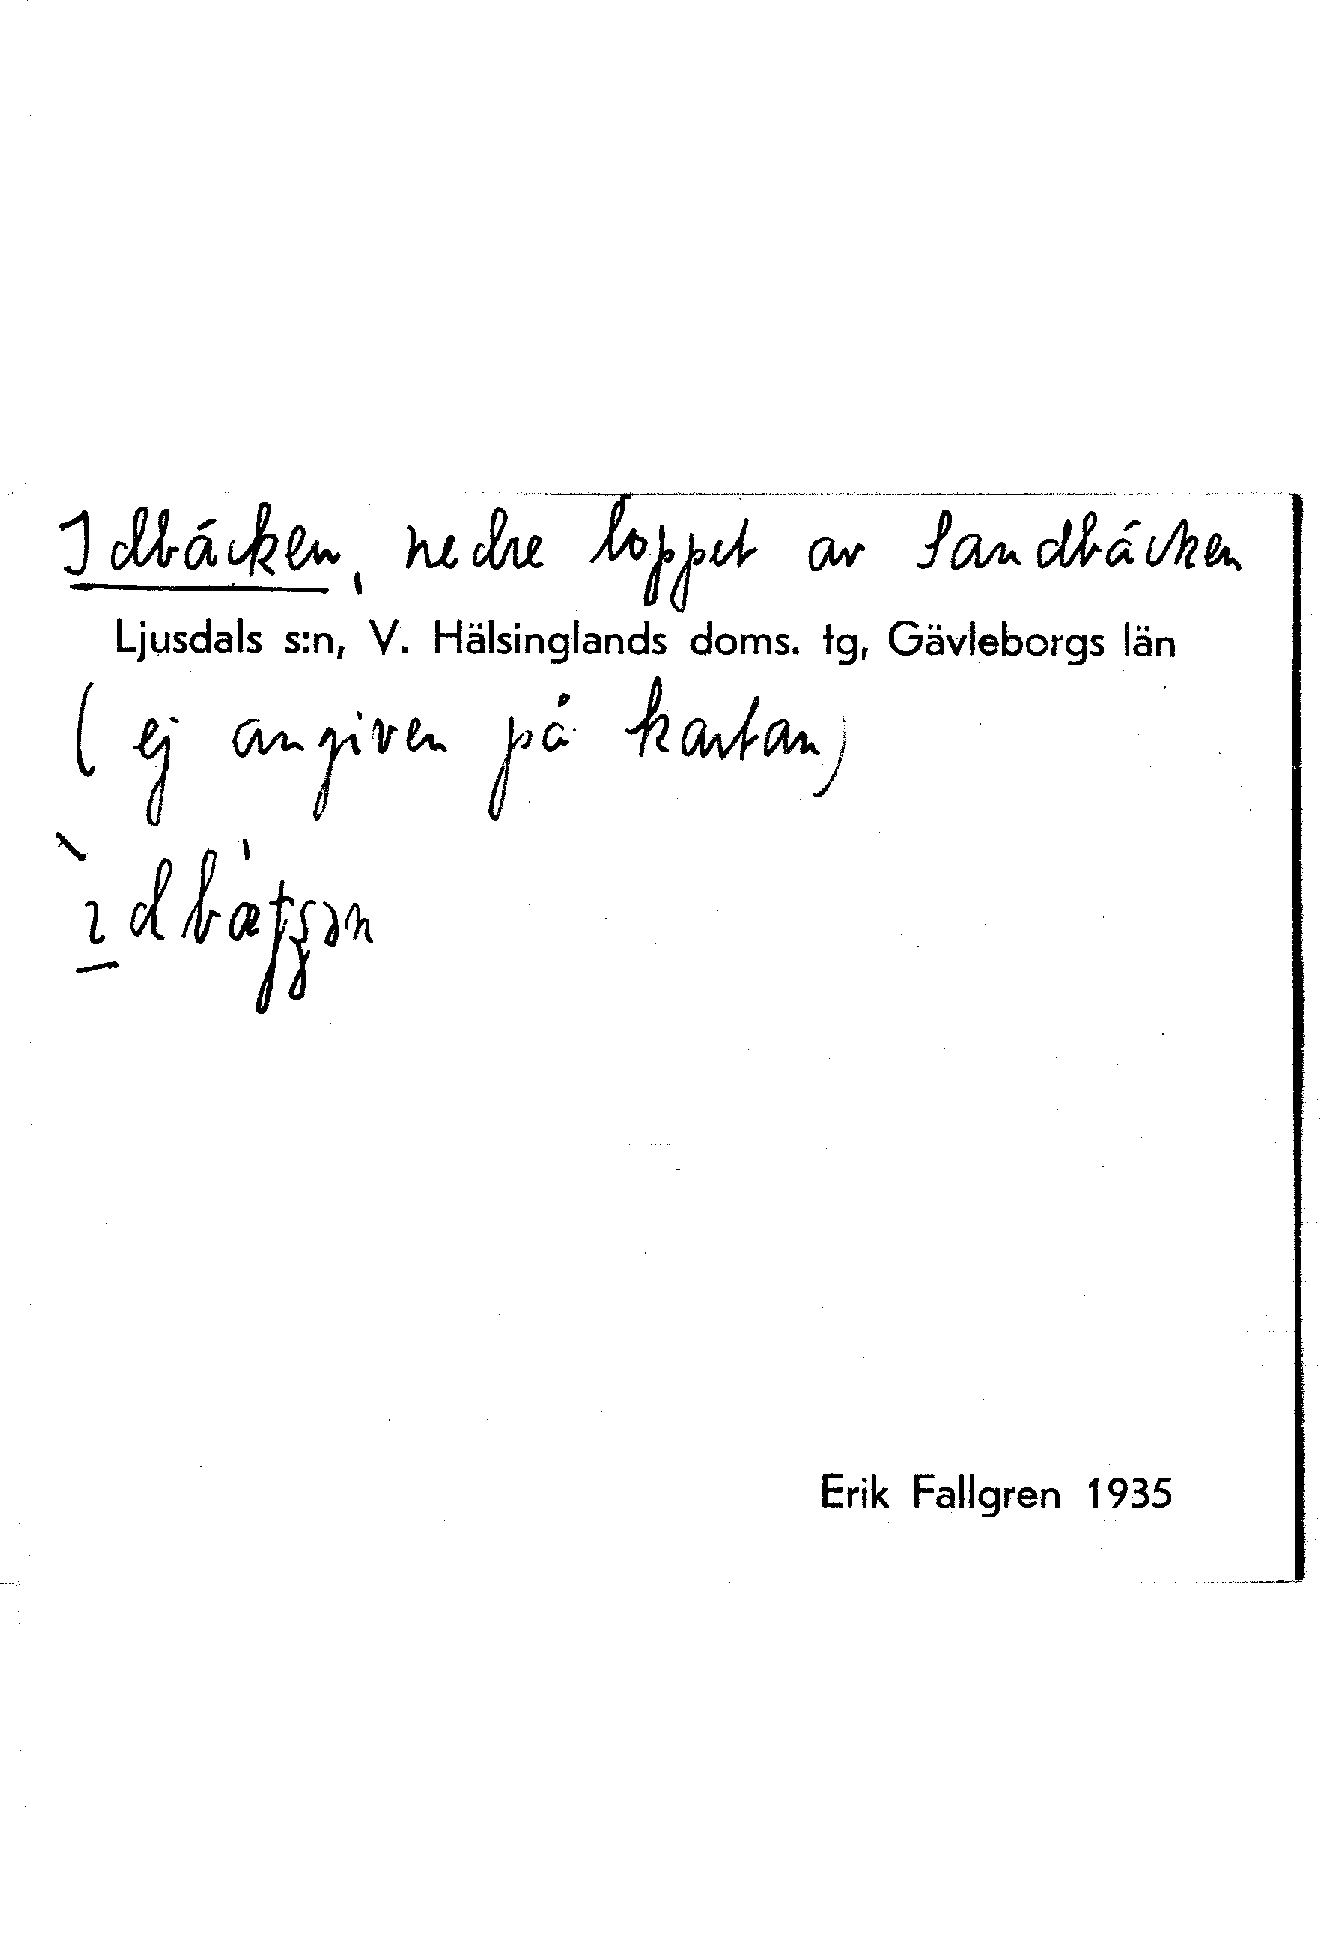 Idbäcken, nedre loppet av Sandbäcken
Ljusdals s:n, V. Hälsinglands doms. tg, Gävleborgs län
(ej angiven på kartan)
Erik Fallgren 1935